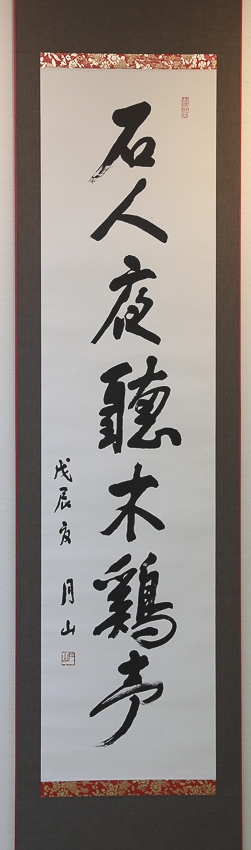 石人夜聽木鶏声
戊辰夏 月山